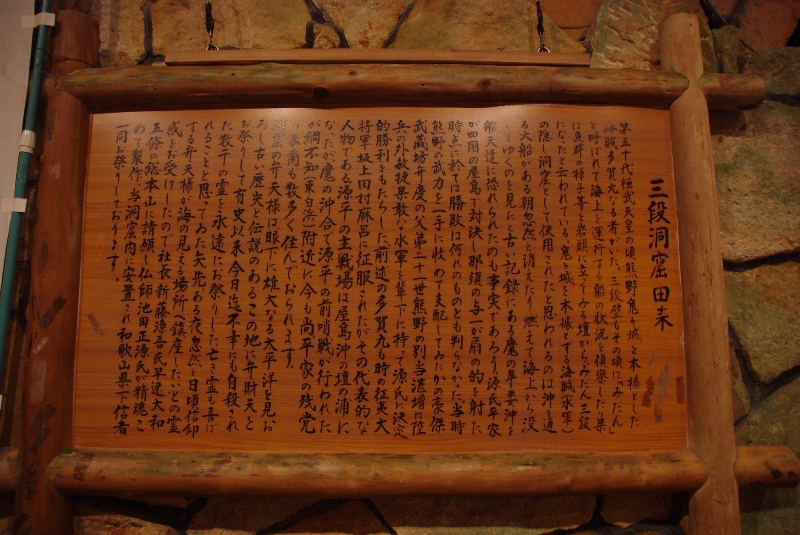 三段洞窟由来
第五十代桓武天皇の頃熊野鬼ヶ城を本據とした
海賊多賀丸なる者がいた 三段壁もその頃は「みだん」
と呼ばれて海上を運行する船の状況を偵察したり 果
は魚群の様子等を岩頭に立ってみる壇からみだん 三段
になったと云われている 鬼ヶ城を本據とする海賊(水軍)
の隠し洞窟として使用されたと思われるのは沖を通
る大船がある朝忽然と消えたり 燃えて海上から没
してゆくのを見たと古い記録にある魔の牟婁沖を
船夫達に恐れられたのも事実であろう 源氏平家
が四国の屋島で対決し那須の与一が扇の的を射た
時点に於ては勝敗は何れのものとも判らなかった 当時
熊野の武力を一手に收めて支配してゐたかの豪傑
武蔵坊弁慶の父第二十一世熊野の別当湛増は陸
兵の外敏捷果敢な水軍を輩下に持って源氏に決定
的勝利をもたらした 前述の多賀丸も時の征夷大
将軍坂上田村麻呂に征服されたがその代表的な
人物である 源平の主戦場は屋島沖の壇の浦に
なったが 魔の沖合で源平の前哨戦が行われた
が綱不知(東白浜)附近に今も尚平家の残党
の裔も数多く住んでおられます。
洞窟の弁天様は眼下に雄大なる太平洋を見お
ろし古い歴史と伝説のあるこの地に弁財天と
お祭りして有史以来今日迄 不幸にも自殺され
た数千の霊を永遠にお祭りした亡き霊も喜ば
れることと思ってゐた矢先ある夜忽然と日頃信仰
する弁天様が海の見える場所へ鎮座したいとの霊
感をお受けしたので社長新藤源吾氏早速大和
五條の総本山に請願し仏師池田正源氏が精魂こ
めて製作 当洞窟内に安置され和歌山県下信者
一同お祭りしております。